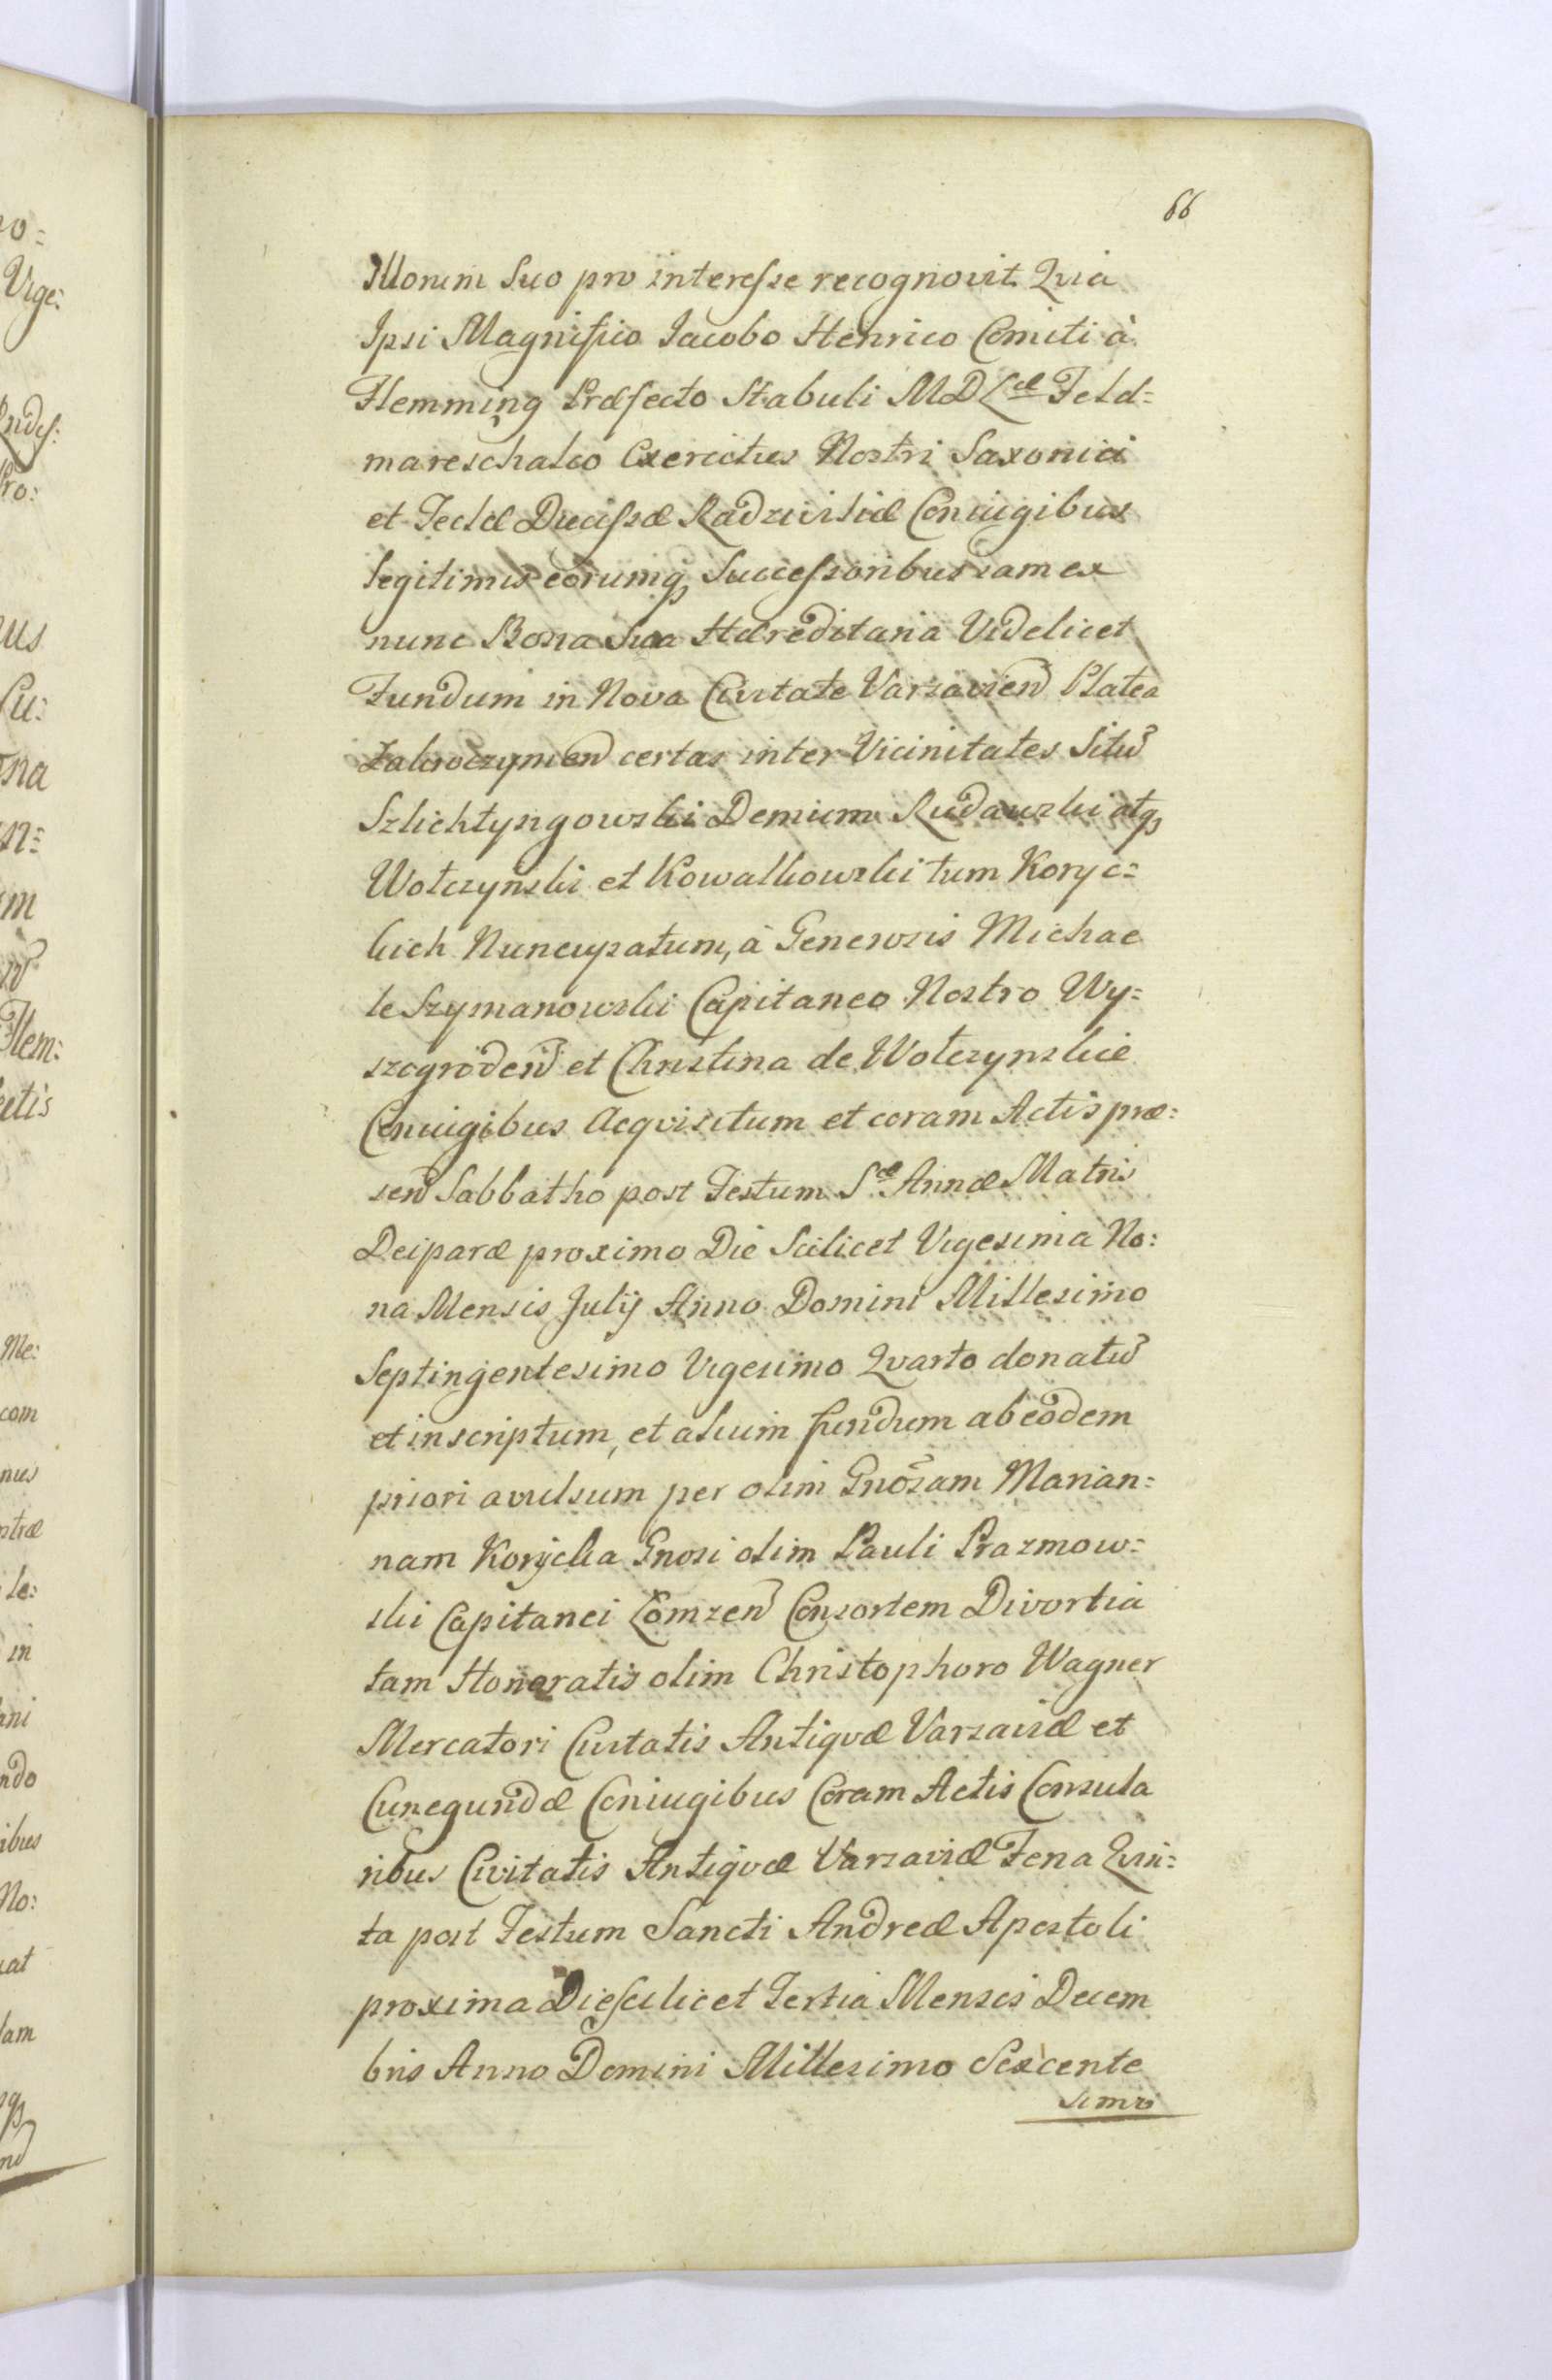 66
Illorum Suo pro interesse recognovit Qvia
Ipsi Magnifico Iacobo Henrico Comiti à
Flemming Præfecto Stabuli MDLæ Feld=
mareschalco Exercitus Nostri Saxonici
et Teclæ Ducissæ Radziviliæ Coniugibus
legitimis eorumq Successoribus iam ex
nunc Bona Sua Hæreditaria Videlicet
Fundum in Nova Civitate Varsavien Platea
Zakroczymen certas inter Vicinitates Situ
Szlichtyngowski Demum Rudawski atq
Wołczynski et Kowalkowski tum Koryc=
kich Nuncupatum, à Generosis Michae
le Szymanowski Capitaneo Nostro Wy=
szogroden et Christina de Wołczynskie
Coniugibus Acqvisitum et coram Actis præ=
sen Sabbatho post Festum Sæ Annæ Matris
Deiparæ proximo Die Scilicet Vigesima No:
na Mensis Julij Anno Domini Millesimo
Septingentesimo Vigesimo Qvarto donatu
et inscriptum, et alium fundum ab eodem
priori avulsum per olim Gnosam Marian=
nam Korycka Gnosi olim Pauli Prazmow=
ski Capitanei Łomzen Consortem Divortia
tam Honoratis olim Christophoro Wagner
Mercatori Civitatis Antiqvæ Varsaviæ et
Cunegundæ Coniugibus Coram Actis Consula
ribus Civitatis Antiqvæ Varsaviæ Feria Qvin=
ta post Festum Sancti Andreæ Apostoli
proxima Die Scilicet Tertia Mensis Decem
bris Anno Domini Millesimo Sexcente
simo